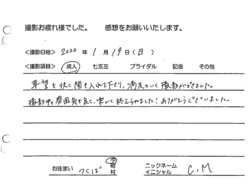 撮影お疲れ様でした。 感想をお願いいたします。
<撮影日時> 2020年 1月 19日(日)
<撮影項目> 成人 七五三 ブライダル 記念 その他
希望を快く聞き入れて下さり、満足いく撮影ができました。
撮影中も雰囲気も良く、楽しく終えられました!ありがとうございました。
お住まい つくば 市 町 村 ニックネーム イニシャル C.M